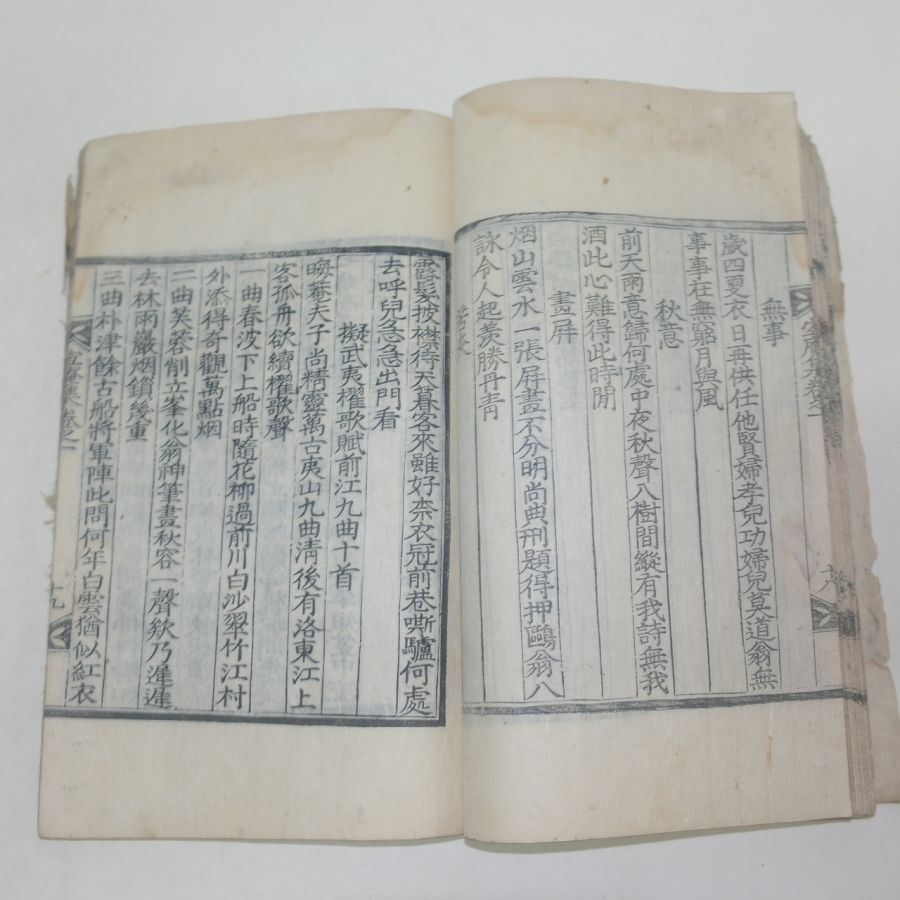 無事
歲四夏衣日再供任他賢婦孝兒功婦兒莫道翁無
事事在無窮月與風
秋意
前天雨意歸何處中夜秋聲入樹間縱有我詩無我
酒此心難得此時閒
畫屏
烟山雲水一張屏畫不分明尚典刑題得押鷗翁八
詠令人起羨勝丹靑
露髮披襟待天暮客來雖好柰衣冠前巷嘶驢何處
去呼兒急急出門看
擬武夷櫂歌賦前江九曲十首
晦菴夫子尚精靈萬古夷山九曲淸後有洛東江上
客孤舟欲續櫂歌聲
一曲春波下上船時隨花柳過前川白沙翠竹江村
外添得奇觀萬點烟
二曲芙蓉削立峯化翁神筆畫秋容一聲欸乃進進
去林雨巖烟鎖幾重
三曲朴津餘古船將軍陣此問何年白雲猶似紅衣
十九